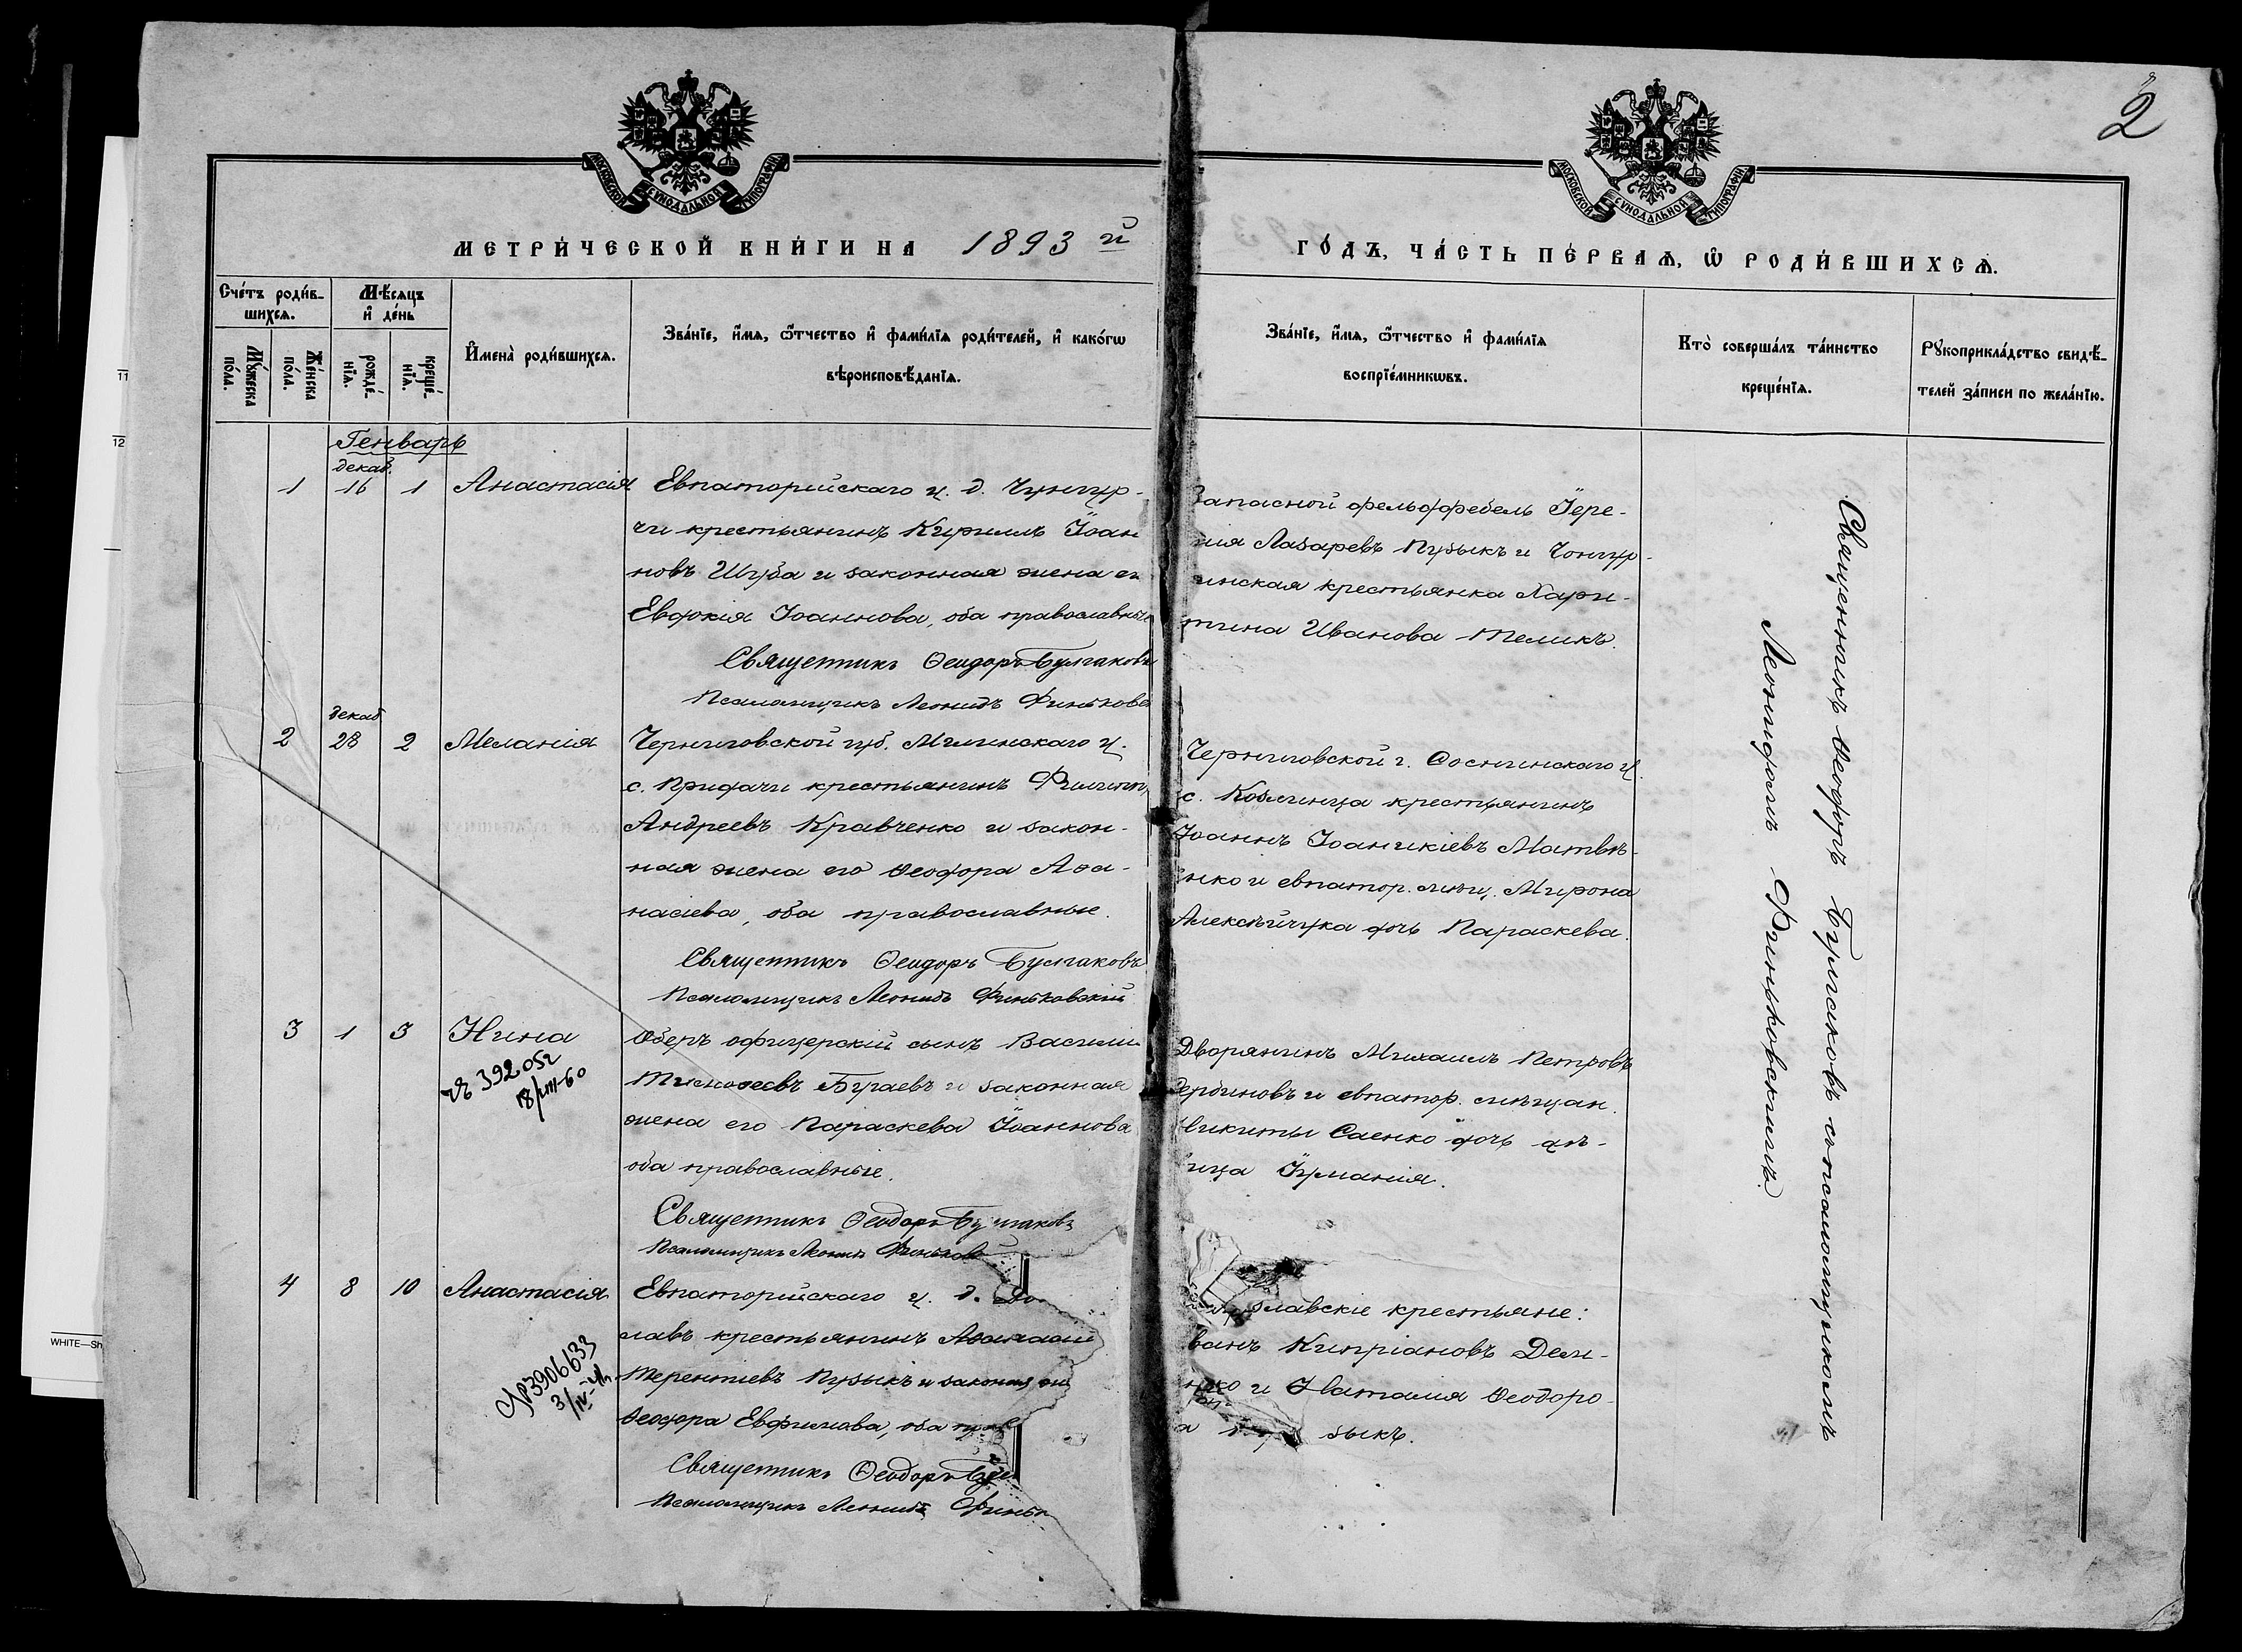 2
МОСКОВСКОЙ СѴНОДАЛЬНОЙ ТИПОГРАФІИ
МОСКОВСКОЙ СѴНОДАЛЬНОЙ ТИПОГРАФІИ
МЕТРИ́ЧЕСКОЙ КНИ́ГИ НА 1893 й
ГО́ДЪ, ЧА́СТЬ ПЕ́РВАѦ, Ѡ РОДИ́ВШИХСѦ.
Сче́тъ роди́в-
шихсѧ.
Мꙋ́жеска
пола.
Же́нска
по́ла.
Мѣ́сѧцъ
и҆ де́нь
рожде́-
нїѧ.
креще́-
нїѧ.
И҆мена̀ роди́вшихсѧ.
Зва́нїе, и҆́мѧ, ѻ҆́тчество и҆ фами́лїѧ роди́телей, и҆ како́гѡ
вѣроисповѣ́данїѧ.
Зва́нїе, и҆́мѧ, ѻ҆́тчество и҆ фами́лїѧ
воспрїе́мникѡвъ.
Кто̀ соверша́лъ та́инство
креще́нїѧ.
Рꙋкоприкла́дство свидѣ́-
телей за́писи по жела́нїю.
Генварь
декаб.
1 16 1 Анастасія
Евпаторійскаго у. д. Чунгур-
чи крестьянинъ Кириллъ Іоан
новъ Шуба и законная жена ег
Евдокія Іоаннова, оба православные
Священникъ Ѳеодоръ Булгаковъ
Псаломщикъ Леонидъ Финьковс
Запасной фельдфебель Іере-
мія Лазаревъ Пузыкъ и Чонгур-
чинская крестьянка Хари-
тина Иванова Телихъ.
декаб
2 28 2 Меланія
Черниговской губ. Мглинскаго у.
с. Придачи крестьянинъ Филиппъ
Андреевъ Кравченко и закон-
ная жена его Ѳеодора Аѳа-
насіева, оба православные.
Священникъ Ѳеодоръ Булгаковъ
Псаломщикъ Леонидъ Финьковскій
Черниговской г. Сосницкаго у.
с. крестьянинъ
Іоаннъ Іоанникіевъ Матвѣ-
енко и евпатор. мѣщ. Мирона
Алексѣйчука дочь Параскева.
3 1 3 Нина
№ 392052
18/VIII-60
Оберъ офицерскій сынъ Василій
Тимоѳеевъ Бугаевъ и законная
жена его Параскева Іоаннова
оба православные.
Священникъ Ѳеодоръ Булгаковъ
Псаломщикъ Леонидъ Финьков
Дворянинъ Михаилъ Петровъ
Дербиновъ и евпатор. мѣщан.
Никиты Саенко дочь дѣ-
вица Іуліанія.
4 8 10 Анастасія
№3906633
Евпаторійскаго у. д.
славъ крестьянинъ Аѳанасій
Терентіевъ Пузыкъ и законная же
Ѳеодора Евфимова, оба прав
Священникъ Ѳеодоръ Бул
Псаломщикъ Леонидъ Финьк
славскіе крестьяне:
ванъ Кипріановъ Дем-
нко и Наталія Ѳеодоро-
а зыкъ.
Священникъ Ѳеодоръ Булгаковъ съ псаломщикомъ
Леонидомъ Финьковскимъ.
11
12
WHITE—Sh